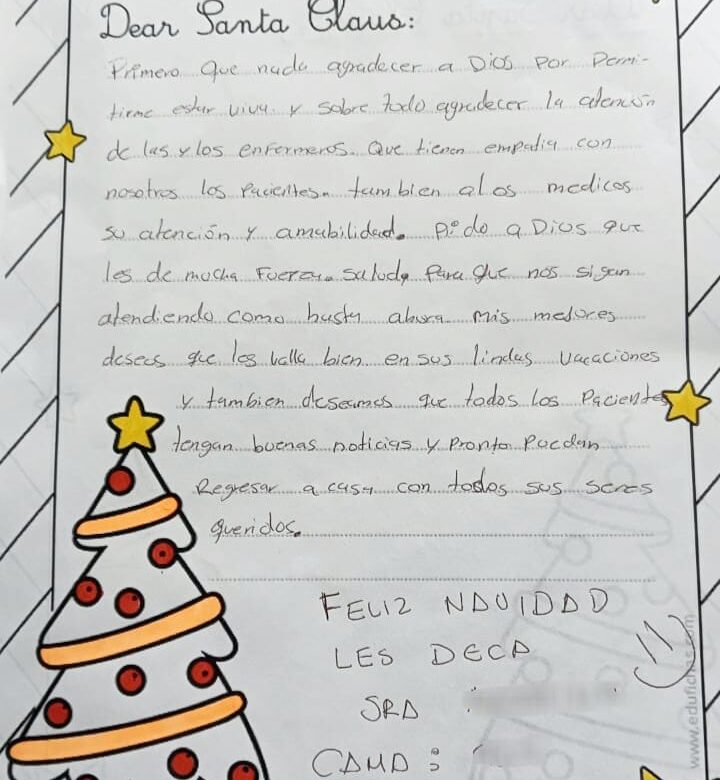 Dear Santa Claus:
Primero que nada agradecer a Dios por permi-
tirme estar viva y sobre todo agradecer la atención
de las y los enfermeros. Que tienen empatia con
nosotros los Pacientes. tambien a los medicos
su atención y amabilidad. Pido a Dios que
les de mucha Fuerza. salud, Para que nos sigan
atendiendo como hasta ahora mis mejores
deseos que les valla bien en sus lindas vacaciones
y tambien deseamos que todos los Pacientes
tengan buenas noticias y Pronto Puedan
Regresar a casa con todos sus seres
queridos.
FELIZ NAVIDAD
LES DECA
SRA :
CAMA :
www.edufichas.com